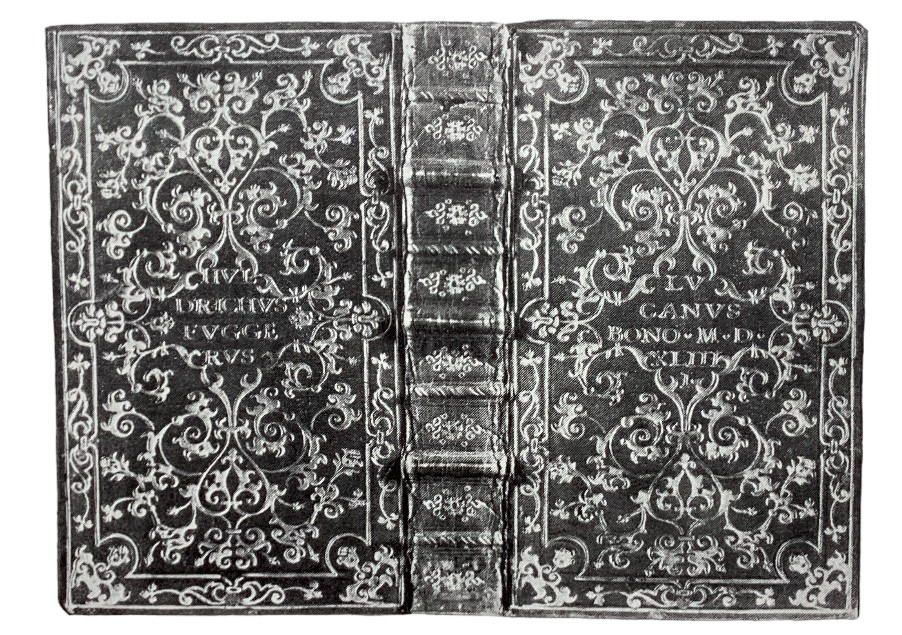 HVL
DRICHVS
FVGGE
RVS ·
LV
CANVS
BONO · M · D ·
XLIII
I ·